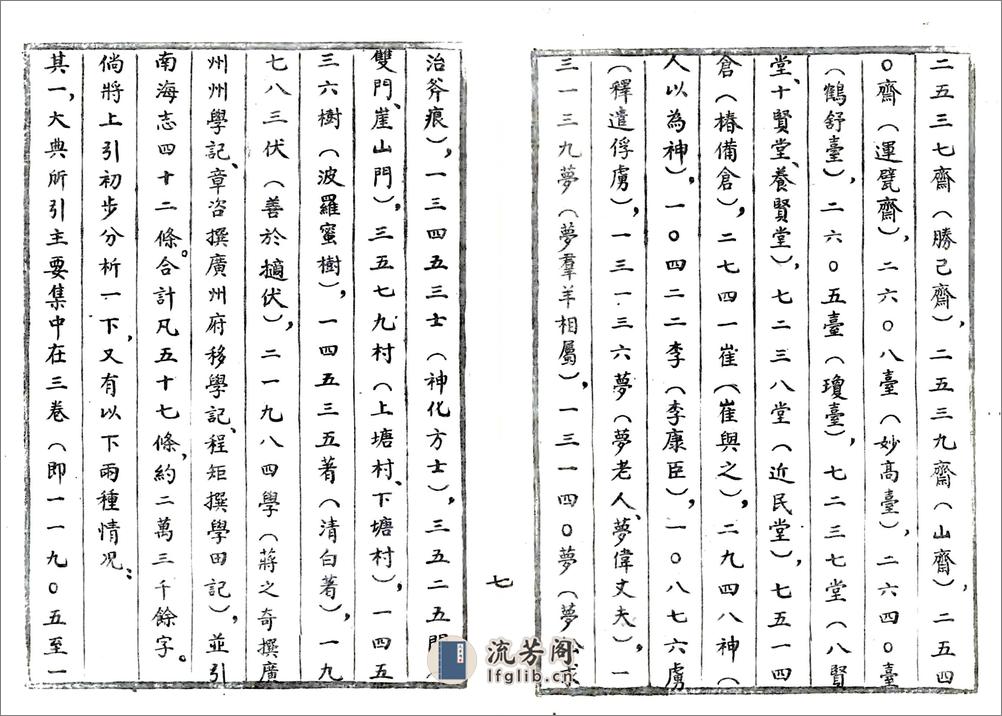 二五三七齋（勝己齋），二五三九齋（山齋），二五四
〇齋（運甓齋），二六〇八臺（妙高臺），二六四〇臺
（鶴舒臺），二六〇五臺（瓊臺），七二三七堂（八賢
堂、十賢堂、養賢堂），七二三八堂（近民堂），七五一四
倉（椿備倉），二七四一崔（崔與之），二九四八神（
人以為神），一〇四二二李（李康臣），一〇八七六虜
（釋遣俘虜），一三一三六夢（夢老人、夢偉丈夫），一
三一三九夢（夢羣羊相屬），一三一四〇夢（夢
七
治斧痕），一三四五三士（神化方士），三五二五門
雙門、崖山門），三五七九村（上塘村、下塘村），一四五
三六樹（波羅蜜樹），一四五三五著（清白著），一九
七八三伏（善於擿伏），二一九八四學（蔣之奇撰廣
州州學記、章咨撰廣州府移學記、程矩撰學田記），並引
南海志四十二條。合計凡五十七條，約二萬三千餘字。
倘將上引初步分析一下，又有以下兩種情況：
其一，大典所引主要集中在三卷（即一一九〇五至一
流芳阁
lfglib.cn